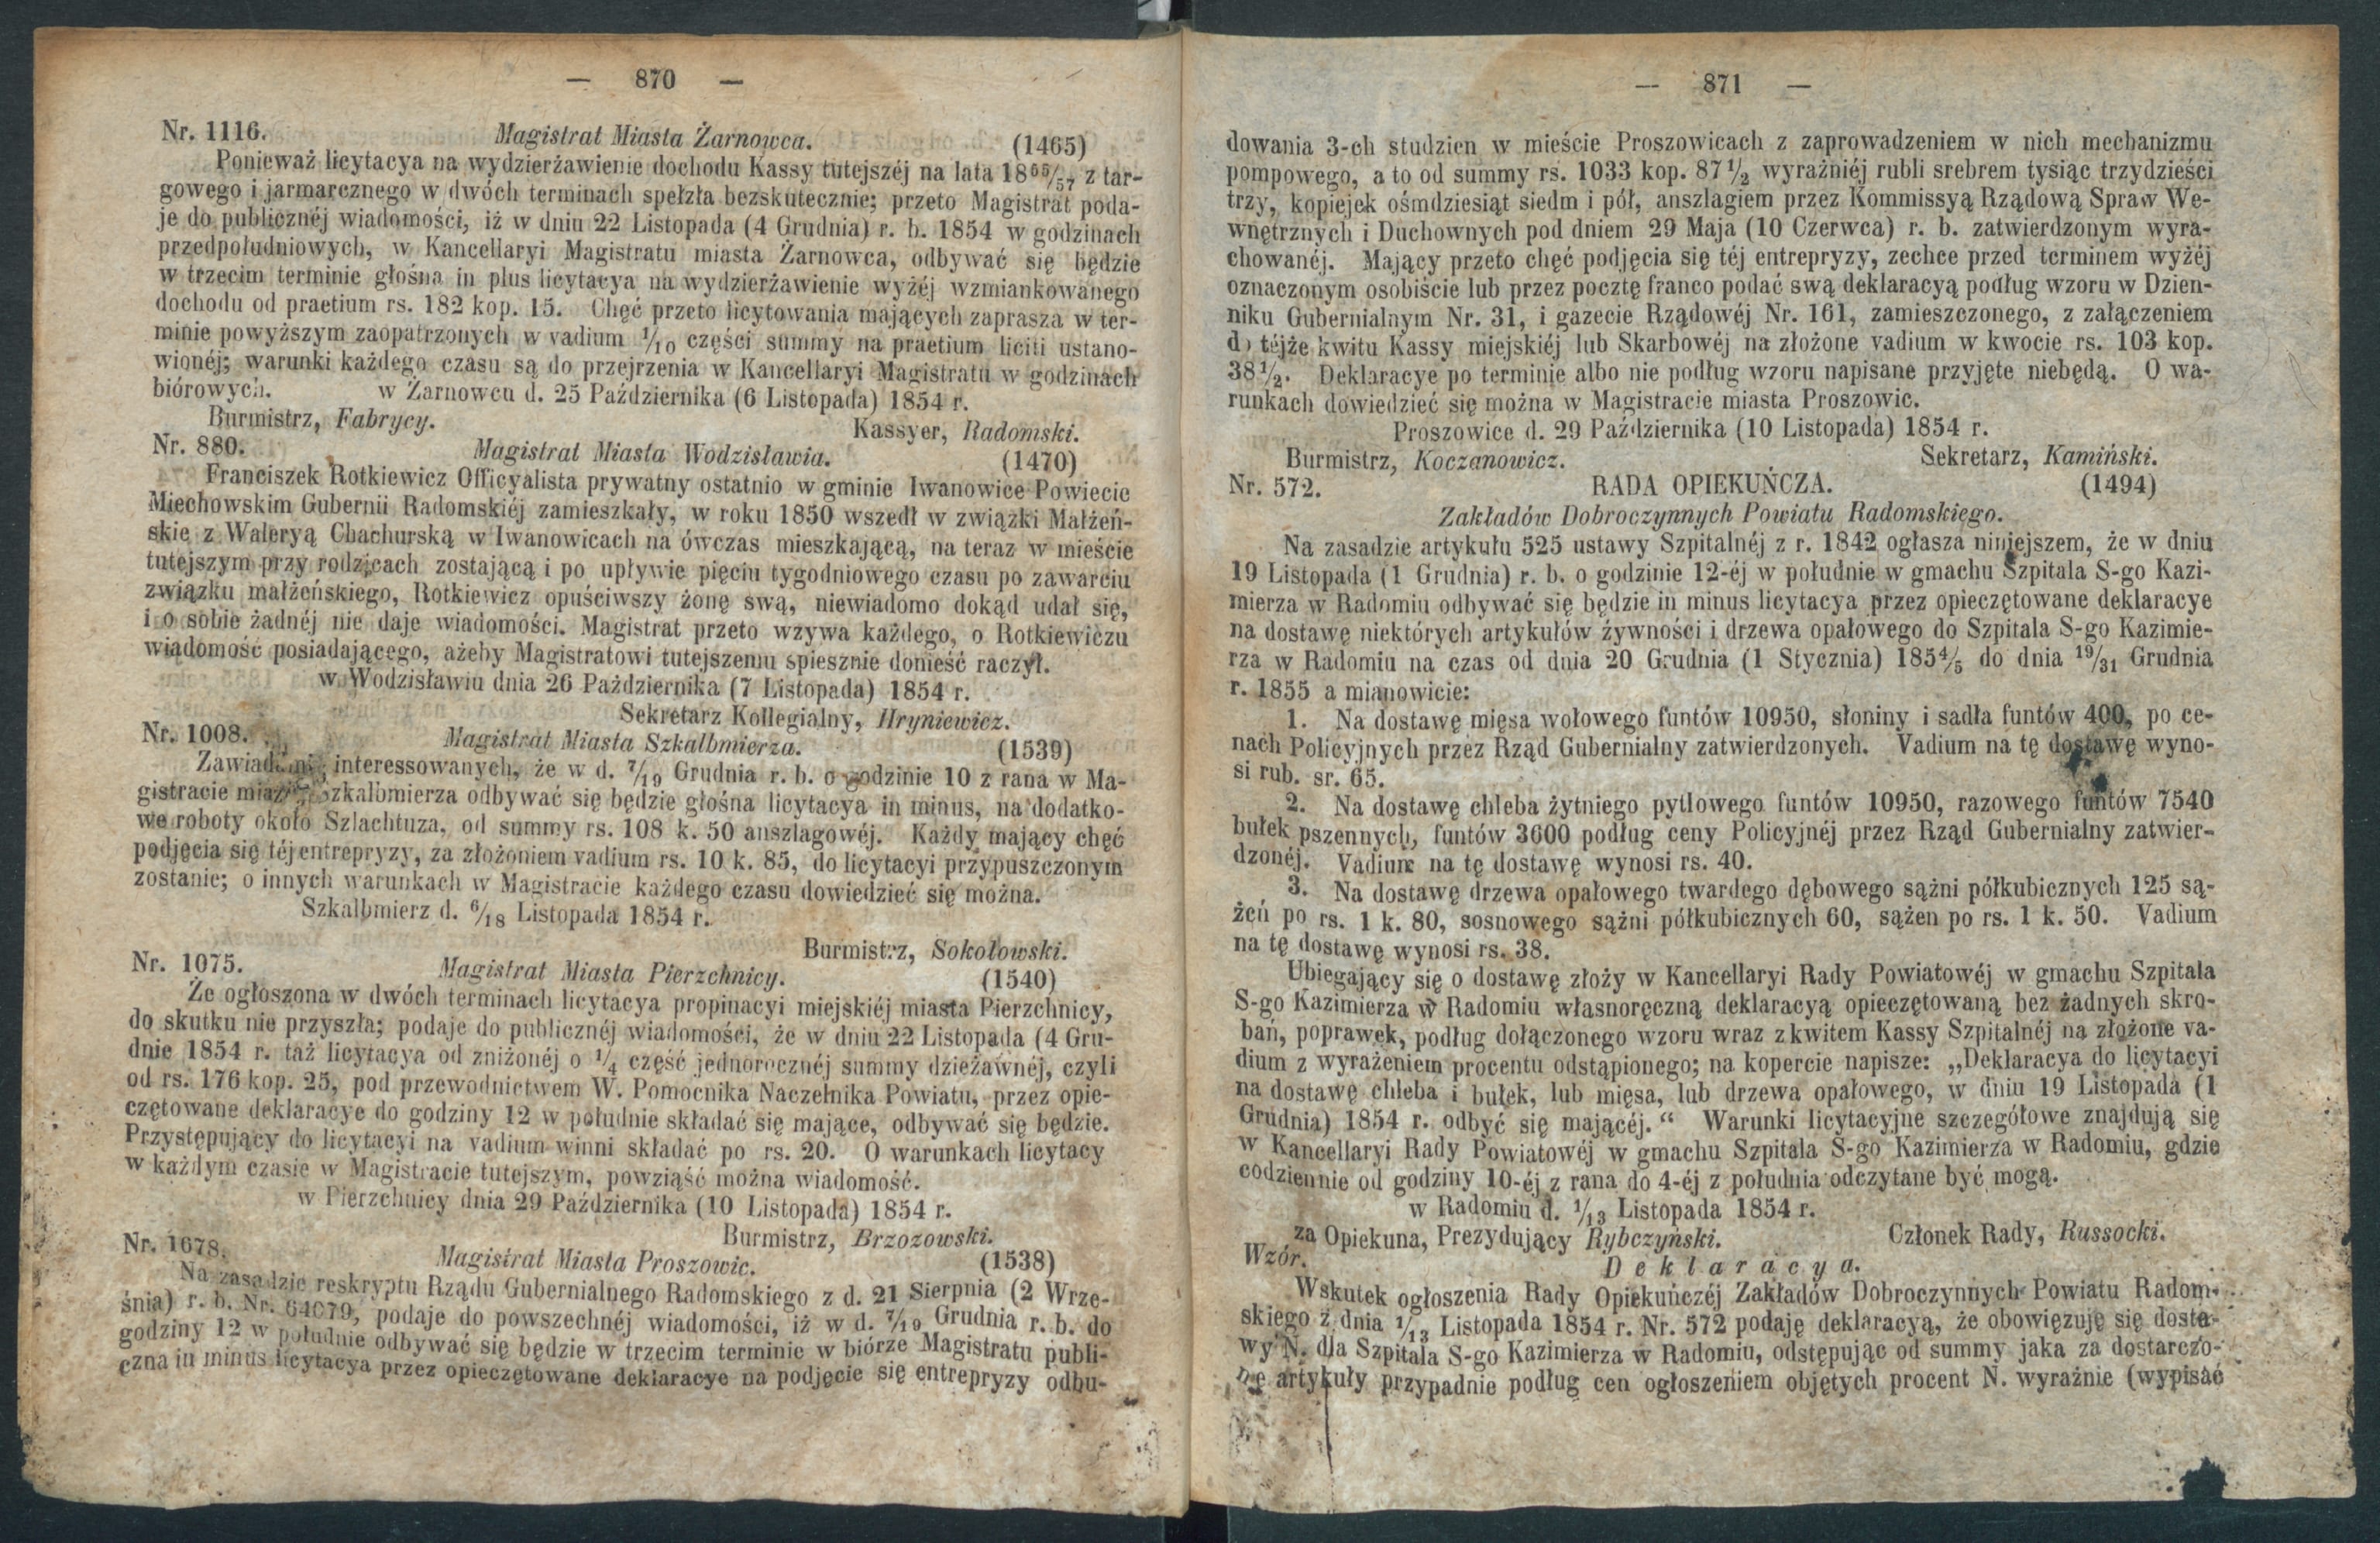 — 870 —
Nr. 1116. Magistrat Miasta Żarnowca. (1465)
Ponieważ licytacya na wydzierżawienie dochodu Kassy tutejszéj na lata 18⁵⁵/₅₇ z tar-
gowego i jarmarcznego w dwóch terminach spełzła bezskutecznie; przeto Magistrat poda-
je do publicznéj wiadomości, iż w dniu 22 Listopada (4 Grudnia) r. b. 1854 w godzinach
przedpołudniowych, w Kancellaryi Magistratu miasta Żarnowca, odbywać się będzie
w trzecim terminie głośna in plus licytacya na wydzierżawienie wyżéj wzmiankowanego
dochodu od praetium rs. 182 kop. 15. Chęć przeto licytowania mających zaprasza w ter-
minie powyższym zaopatrzonych w vadium ¹/₁₀ części summy na praetium liciti ustano-
wionéj; warunki każdego czasu są do przejrzenia w Kancellaryi Magistratu w godzinach
biórowych. w Żarnowcu d. 25 Października (6 Listopada) 1854 r.
Burmistrz, Fabrycy. Kassyer, Radomski.
Nr. 880. Magistrat Miasta Wodzisławia. (1470)
Franciszek Rotkiewicz Officyalista prywatny ostatnio w gminie Iwanowice Powiecie
Miechowskim Gubernii Radomskiéj zamieszkały, w roku 1850 wszedł w związki Małżeń-
skie z Waleryą Chachurską w Iwanowicach na ówczas mieszkającą, na teraz w mieście
tutejszym przy rodzicach zostającą i po upływie pięciu tygodniowego czasu po zawarciu
związku małżeńskiego, Rotkiewicz opuściwszy żonę swą, niewiadomo dokąd udał się,
i o sobie żadnéj nie daje wiadomości. Magistrat przeto wzywa każdego, o Rotkiewiczu
wiadomość posiadającego, ażeby Magistratowi tutejszemu spiesznie donieść raczył.
w Wodzisławiu dnia 26 Października (7 Listopada) 1854 r.
Sekretarz Kollegialny, Hryniewicz.
Nr. 1008. Magistrat Miasta Szkalbmierza. (1539)
interessowanych, że w d. ⁷/₁₉ Grudnia r. b. o godzinie 10 z rana w Ma-
gistracie miasta Szkalbmierza odbywać się będzie głośna licytacya in minus, na dodatko-
we roboty około Szlachtuza, od summy rs. 108 k. 50 anszlagowéj. Każdy mający chęć
podjęcia się téj entrepryzy, za złożoniem vadium rs. 10 k. 85, do licytacyi przypuszczonym
zostanie; o innych warunkach w Magistracie każdego czasu dowiedzieć się można.
Szkalbmierz d. ⁶/₁₈ Listopada 1854 r.
Burmistrz, Sokołowski.
Nr. 1075. Magistrat Miasta Pierzchnicy. (1540)
Że ogłoszona w dwóch terminach licytacya propinacyi miejskiéj miasta Pierzchnicy,
do skutku nie przyszła; podaje do publicznéj wiadomości, że w dniu 22 Listopada (4 Gru-
dnie 1854 r. taż licytacya od zniżonéj o ¹/₄ część jednorocznéj summy dzieżawnéj, czyli
od rs. 176 kop. 25, pod przewodnictwem W. Pomocnika Naczelnika Powiatu, przez opie-
czętowane deklaracye do godziny 12 w południe składać się mające, odbywać się będzie.
Przystępujący do licytacyi na vadium winni składać po rs. 20. O warunkach licytacy
w każdym czasie w Magistracie tutejszym, powziąść można wiadomość.
w Pierzchnicy dnia 29 Października (10 Listopada) 1854 r.
Burmistrz, Brzozowski.
Nr. 1678. Magistrat Miasta Proszowic. (1538)
Na zasadzie reskryptu Rządu Gubernialnego Radomskiego z d. 21 Sierpnia (2 Wrze-
śnia) r. b. Nr. 64079, podaje do powszechnéj wiadomości, iż w d. ⁷/₁₉ Grudnia r. b. do
godziny 12 w południe odbywać się będzie w trzecim terminie w biórze Magistratu publi-
czna in minus licytacya przez opieczętowane deklaracye na podjęcie się entrepryzy odbu-
— 871 —
dowania 3-ch studzien w mieście Proszowicach z zaprowadzeniem w nich mechanizmu
pompowego, a to od summy rs. 1033 kop. 87½ wyraźniéj rubli srebrem tysiąc trzydzieści
trzy, kopiejek ośmdziesiąt siedm i pół, anszlagiem przez Kommissyą Rządową Spraw We-
wnętrznych i Duchownych pod dniem 29 Maja (10 Czerwca) r. b. zatwierdzonym wyra-
chowanéj. Mający przeto chęć podjęcia się téj entrepryzy, zechce przed terminem wyżéj
oznaczonym osobiście lub przez pocztę franco podać swą deklaracyą podług wzoru w Dzien-
niku Gubernialnym Nr. 31, i gazecie Rządowéj Nr. 161, zamieszczonego, z załączeniem
do téjże kwitu Kassy miejskiéj lub Skarbowéj na złożone vadium w kwocie rs. 103 kop.
38½. Deklaracye po terminie albo nie podług wzoru napisane przyjęte niebędą. O wa-
runkach dowiedzieć się można w Magistracie miasta Proszowic.
Proszowice d. 29 Października (10 Listopada) 1854 r.
Burmistrz, Koczanowicz. Sekretarz, Kamiński.
Nr. 572. RADA OPIEKUŃCZA. (1494)
Zakładów Dobroczynnych Powiatu Radomskiego.
Na zasadzie artykułu 525 ustawy Szpitalnéj z r. 1842 ogłasza niniejszem, że w dniu
19 Listopada (1 Grudnia) r. b. o godzinie 12-éj w południe w gmachu Szpitala S-go Kazi-
mierza w Radomiu odbywać się będzie in minus licytacya przez opieczętowane deklaracye
na dostawę niektórych artykułów żywności i drzewa opałowego do Szpitala S-go Kazimie-
rza w Radomiu na czas od dnia 20 Grudnia (1 Stycznia) 185⁴/₅ do dnia ¹⁹/₃₁ Grudnia
r. 1855 a mianowicie:
1. Na dostawę mięsa wołowego funtów 10950, słoniny i sadła funtów 400, po ce-
nach Policyjnych przez Rząd Gubernialny zatwierdzonych. Vadium na tę dostawę wyno-
si rub. sr. 65.
2. Na dostawę chleba żytniego pytlowego funtów 10950, razowego funtów 7540
bułek pszennych, funtów 3600 podług ceny Policyjnéj przez Rząd Gubernialny zatwier-
dzonéj. Vadium na tę dostawę wynosi rs. 40.
3. Na dostawę drzewa opałowego twardego dębowego sążni półkubicznych 125 są-
żeń po rs. 1 k. 80, sosnowego sążni półkubicznych 60, sążen po rs. 1 k. 50. Vadium
na tę dostawę wynosi rs. 38.
Ubiegający się o dostawę złoży w Kancellaryi Rady Powiatowéj w gmachu Szpitala
S-go Kazimierza w Radomiu własnoręczną deklaracyą opieczętowaną bez żadnych skro-
bań, poprawek, podług dołączonego wzoru wraz z kwitem Kassy Szpitalnéj na złożone va-
dium z wyrażeniem procentu odstąpionego; na kopercie napisze: „Deklaracya do licytacyi
na dostawę chleba i bułek, lub mięsa, lub drzewa opałowego, w dniu 19 Listopada (1
Grudnia) 1854 r. odbyć się mającéj.“ Warunki licytacyjne szczegółowe znajdują się
w Kancellaryi Rady Powiatowéj w gmachu Szpitala S-go Kazimierza w Radomiu, gdzie
codziennie od godziny 10-éj z rana do 4-éj z południa odczytane być mogą.
w Radomiu d. ¹/₁₃ Listopada 1854 r.
za Opiekuna, Prezydujący Rybczyński. Członek Rady, Russocki.
Wzór. Deklaracya.
Wskutek ogłoszenia Rady Opiekuńczéj Zakładów Dobroczynnych Powiatu Radom-
skiego z dnia ¹/₁₃ Listopada 1854 r. Nr. 572 podaję deklaracyą, że obowięzuję się dosta-
wy N. dla Szpitala S-go Kazimierza w Radomiu, odstępując od summy jaka za dostarczo-
ne artykuły przypadnie podług cen ogłoszeniem objętych procent N. wyraźnie (wypisać